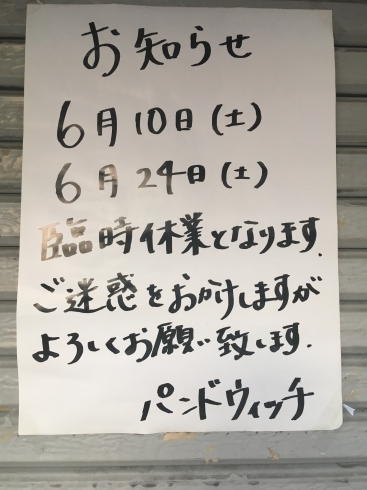 お知らせ
6月10日(土)
6月24日(土)
臨時休業となります.
ご迷惑をおかけしますが
よろしくお願い致します.
パンドウィッチ